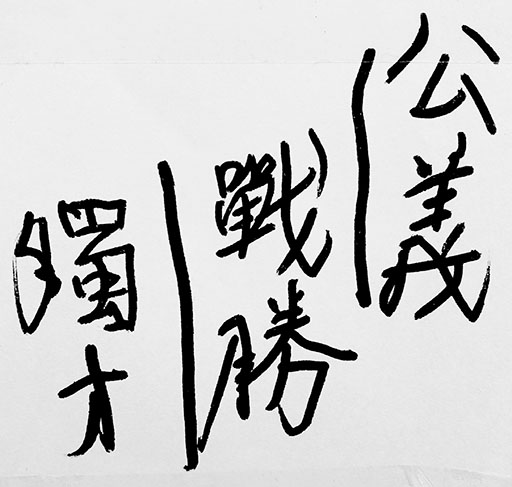 公義
戰勝
獨才